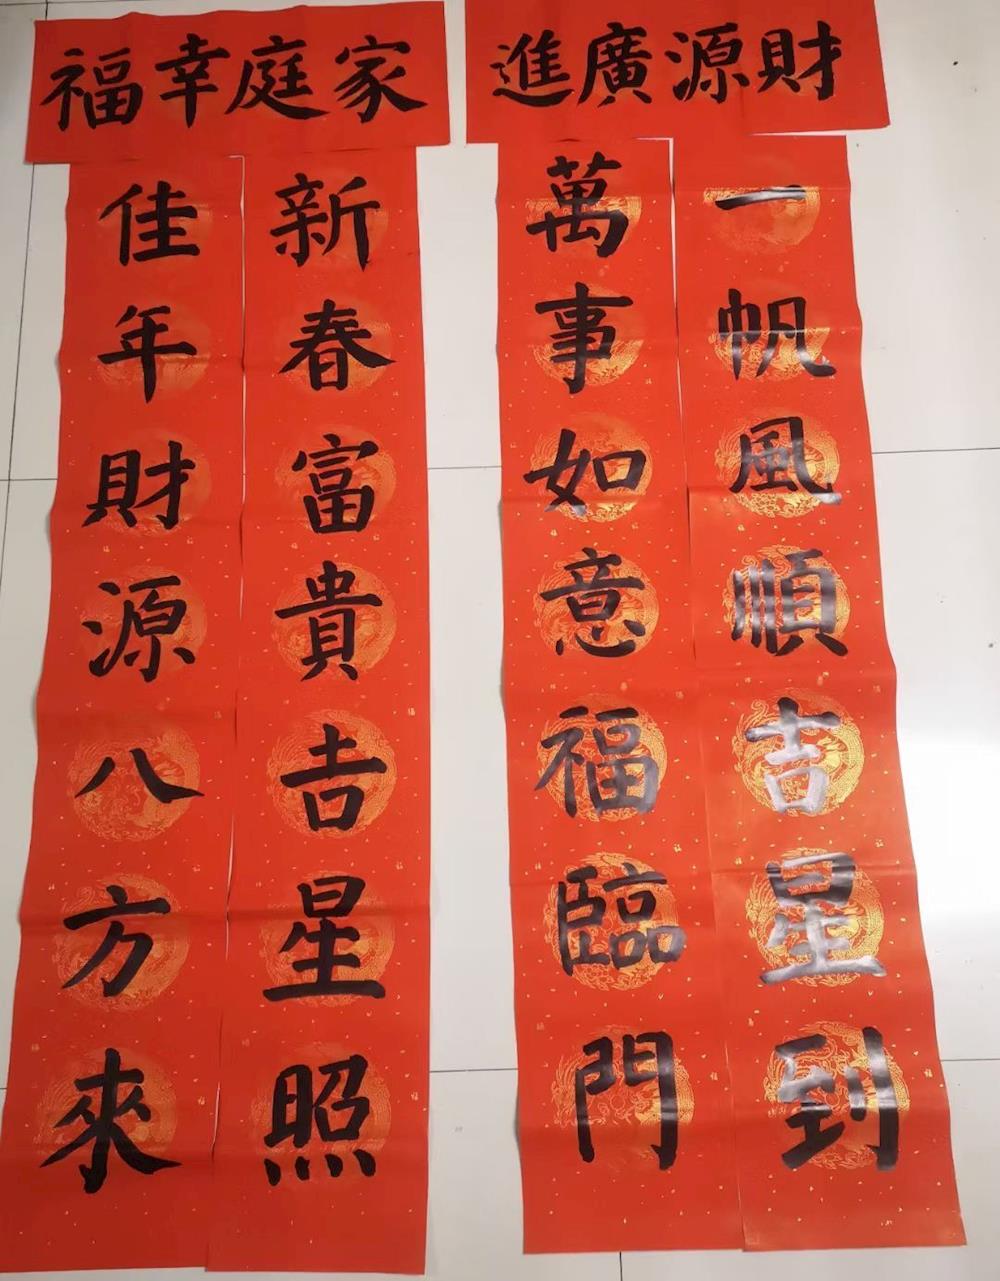 財源廣進
一帆風順吉星到
萬事如意福臨門
家庭幸福
新春富貴吉星照
佳年財源八方來